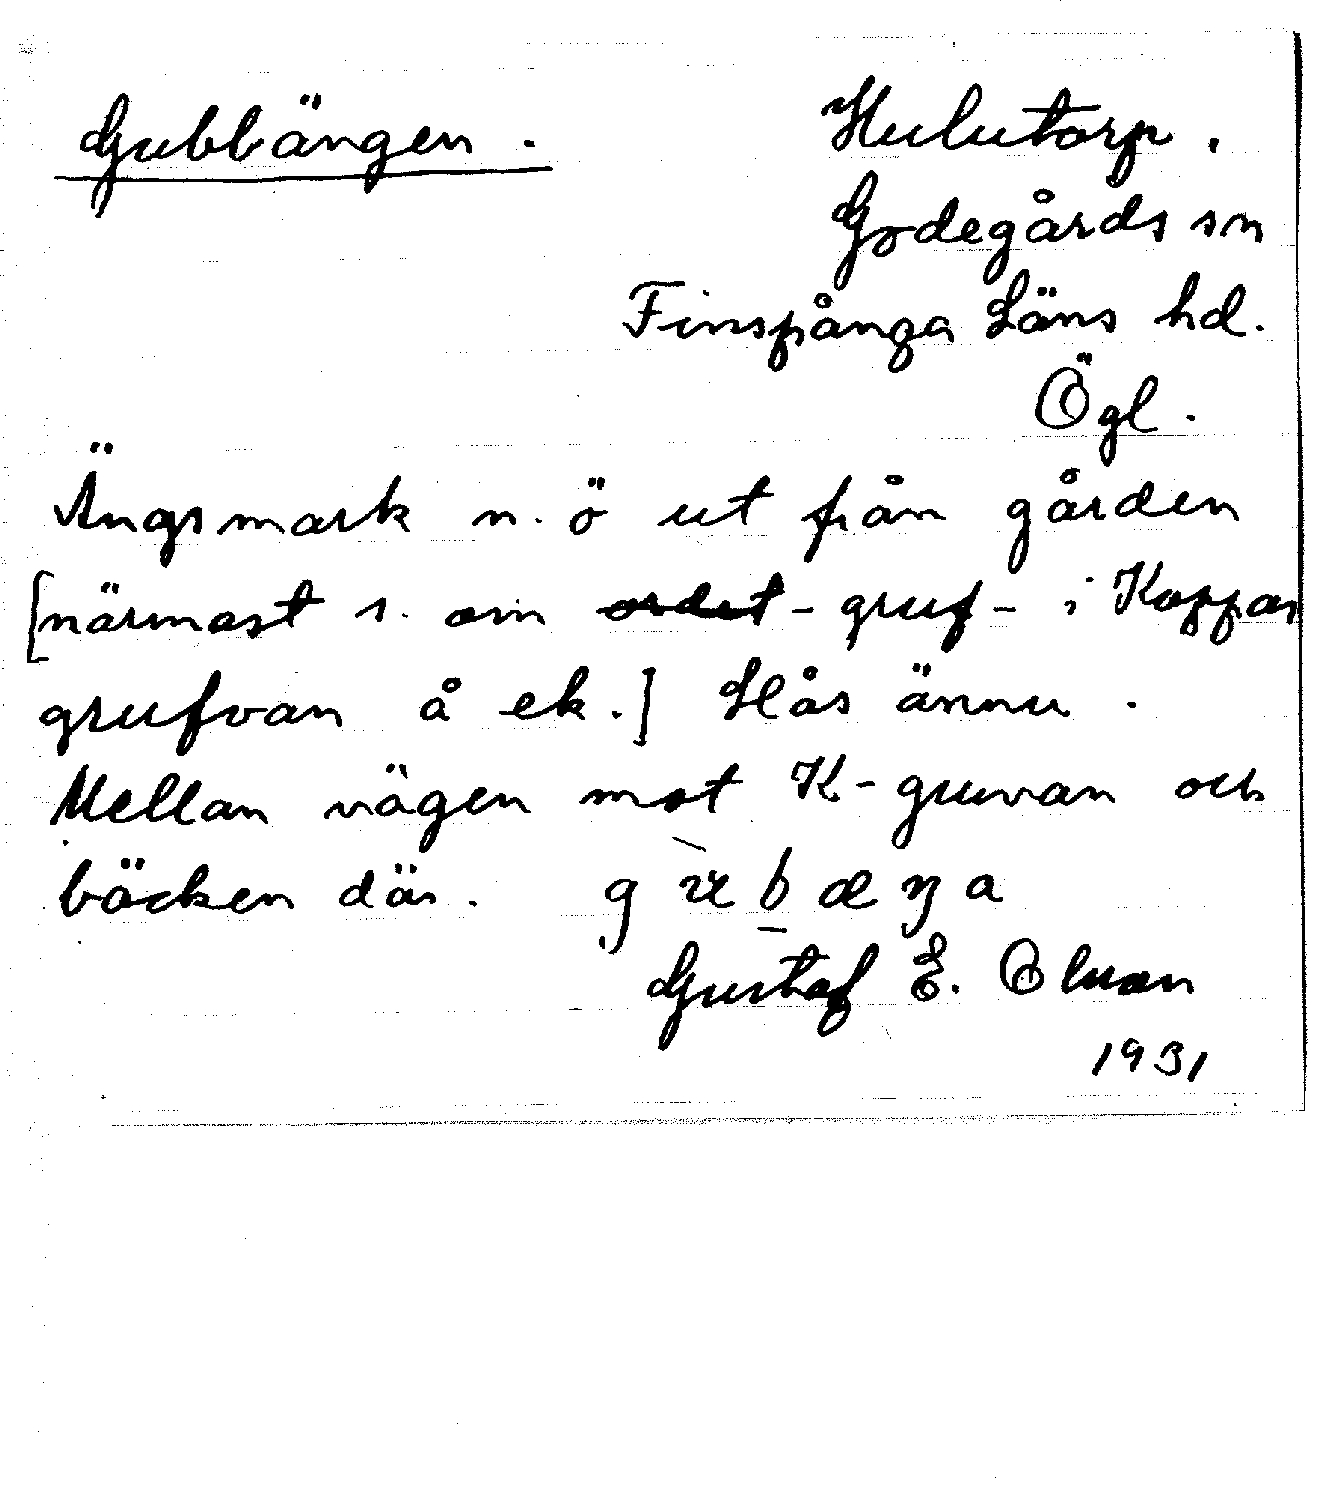 Gubbängen. Hulutorp.
Godegårds sn
Finspånga Läns hd.
Ögl.
Ängsmark n. ö ut från gården
[närmast s. om ordet -gruf- i Koppar
grufvan å ek.] Slås ännu.
Mellan vägen mot K-gruvan och
bäcken där.
Gustaf E. Olsson
1931